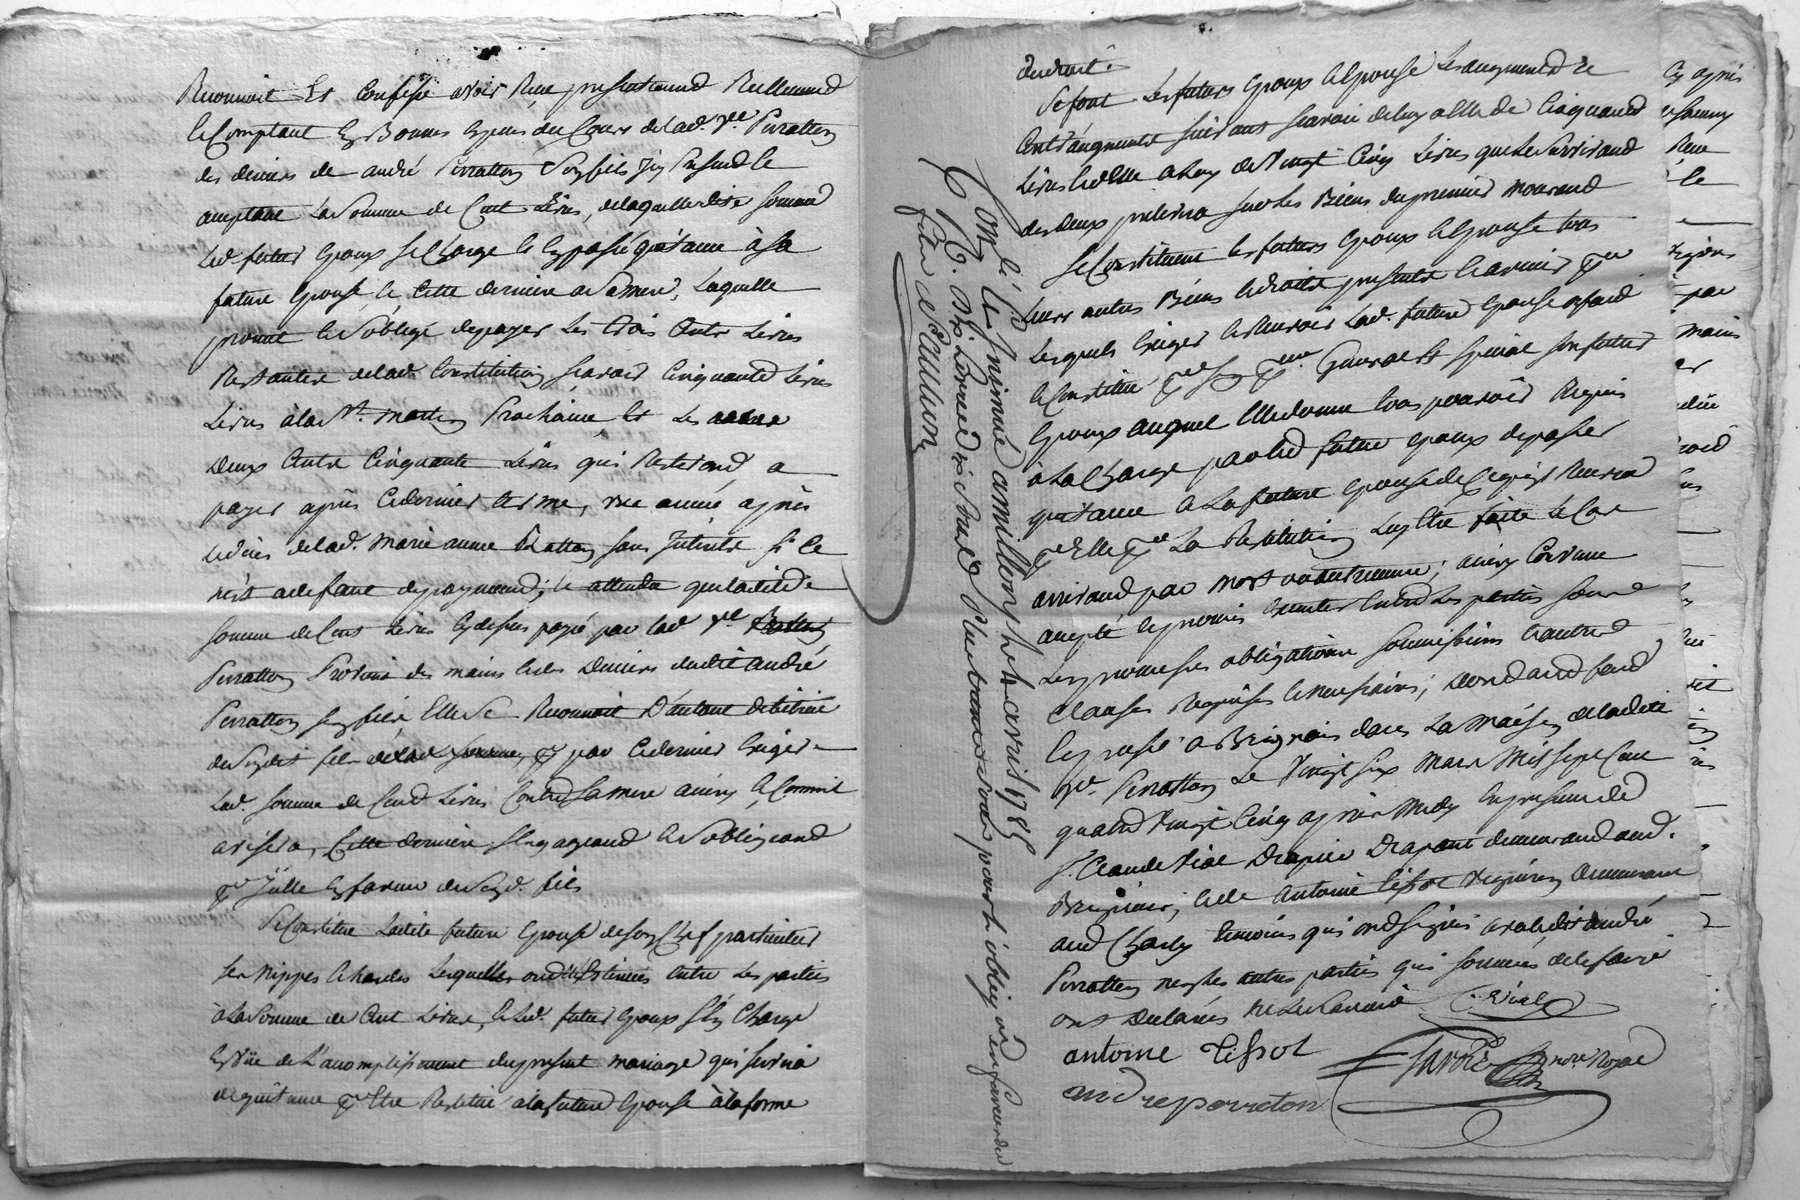 Reconnoit Et Confesse avoir Reçu presentement Reellement
& Comptant En Bonnes Especes du Cours de lad. ve. Perratton
des deniers de andré Perratton Son fils icy Present &
acceptant La Somme de Cent Livres, de laquelle dite Somme
Led. futur Epoux Se Charge & En passe quittance à Sa
future Epouse & Cette derniere a Sa mere, Laquelle
promet & S'oblige de payer Les trois Cents Livres
Restantes de lad. Constitution Scavoir Cinquante Livres
Livres à la St. martin Prochaine Et Les
Deux Cents Cinquante Livres qui Resteront a
payer après Ce dernier terme, une année après
Le déces de lad. Marie anne Sans Interets Si Ce
n'est a defaut de payement; & attendu que ladite
Somme de Cent Livres Cy dessus payé par lad. ve.
Perratton Provient des mains & des Deniers dudit andré
Perratton Son fils Elle Se Reconnoit D'autant débitrice
du Susdit fils pr. par Ce dernier Exiger
Lad. Somme de Cent Livres Contre Sa mere ainsy & Comme il
avisera, Cette derniere S'engageant & S'obligeant
pr. Icelle En faveur du Susd. fils
Se Constitue Ladite future Epouse de Son Chef particulier
Ses Nippes & hardes Lesquelles ont été Estimées Entre Les parties
à La Somme de Cent Livres, & Led. futur Epoux S'En Charge
En Vüe de L'accomplissement du present mariage qui Servira
de quittance pr. Etre Restitué a la future Epouse à la forme
du droit.
Se font Les futurs Epoux & Epouse Les augments &
Contr'augments Suivants Scavoir de luy a Elle de Cinquante
Livres & d'Elle a Luy de Vingt Cinq Livres que Le Survivant
des Deux prelevera Sur Les Biens du premier mourant
Se Constituent les futurs Epoux & Epouse tous
Leurs autres Biens & droits presents & avenir pr.
Lesquels Exiger & Recevoir Lad. future Epouse a fait
& Constitué pr. Son pr. General & Special Son futur
Epoux auquel Elle donne tous pouvoirs Requis
à La Charge par led. futur Epoux de passer
quittance a La future Epouse de Ce qu'il Recevra
pr. Elle pr. La Restitution Luy Etre faite Le Cas
arrivant par mort ou autrement; ainsy Convenu
accepté & promis Executer Entre Les parties Sous
Les promesses obligations Soumissions & autres
Clauses Requises & necessaires; Dont acte fait
& passé a Brignais dans La Maison de ladite
ve. Perratton Le Vingt Six Mars Mil Sept Cent
quatre Vingt Cinq après Midy En presence de
Sr. Claude Vial Drapier Drapant demeurant aud.
Brignais, & de Antoine Tissot Vigneron demeurant
aud Charly temoins qui ont Signés avec ledit andré
Perratton non les autres parties qui Sommées de le faire
ont Declarés ne Le Scavoir C. Vial
antoine Tissot
andre perreton nore. Royal
Con.lé & Insinué a millery le 4 avril 1785